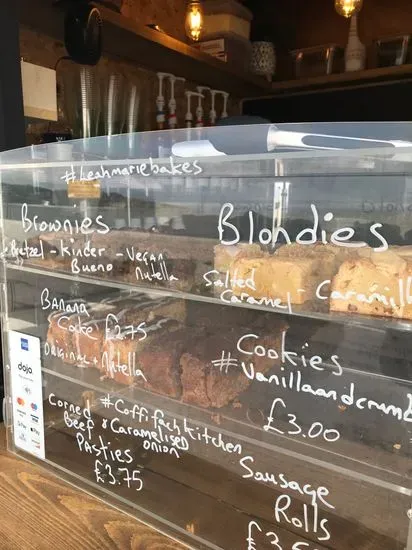 #leahmariebakes
Brownies
Pretzel - Kinder - Vegan
Bueno Nutella
Blondies
Salted - Caramill
Caramel
Banana
Cake £2.75
Original + Nutella
Cookies
#Vanillaandcrumb
£3.00
#Coffifachkitchen
Corned
Beef & Caramelised
onion
Pasties
£3.75
Sausage
Rolls
dojo